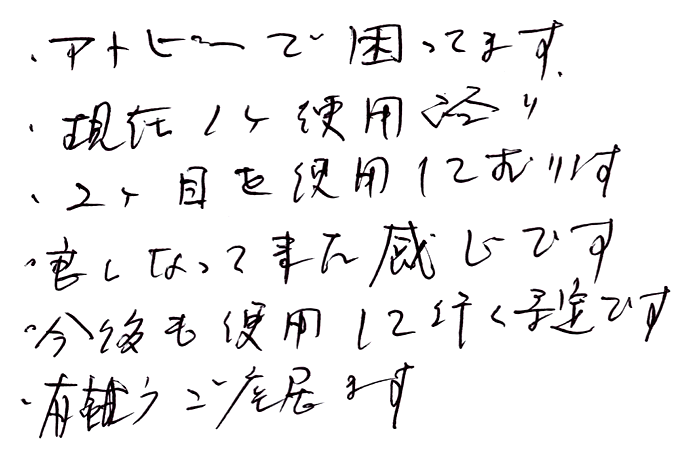 ・アトピーで困ってます。
・現在1ヶ使用済り
・2ヶ目を使用しております
・良くなって来た感じです
・今後も使用して行く予定です
・有難うご座居ます